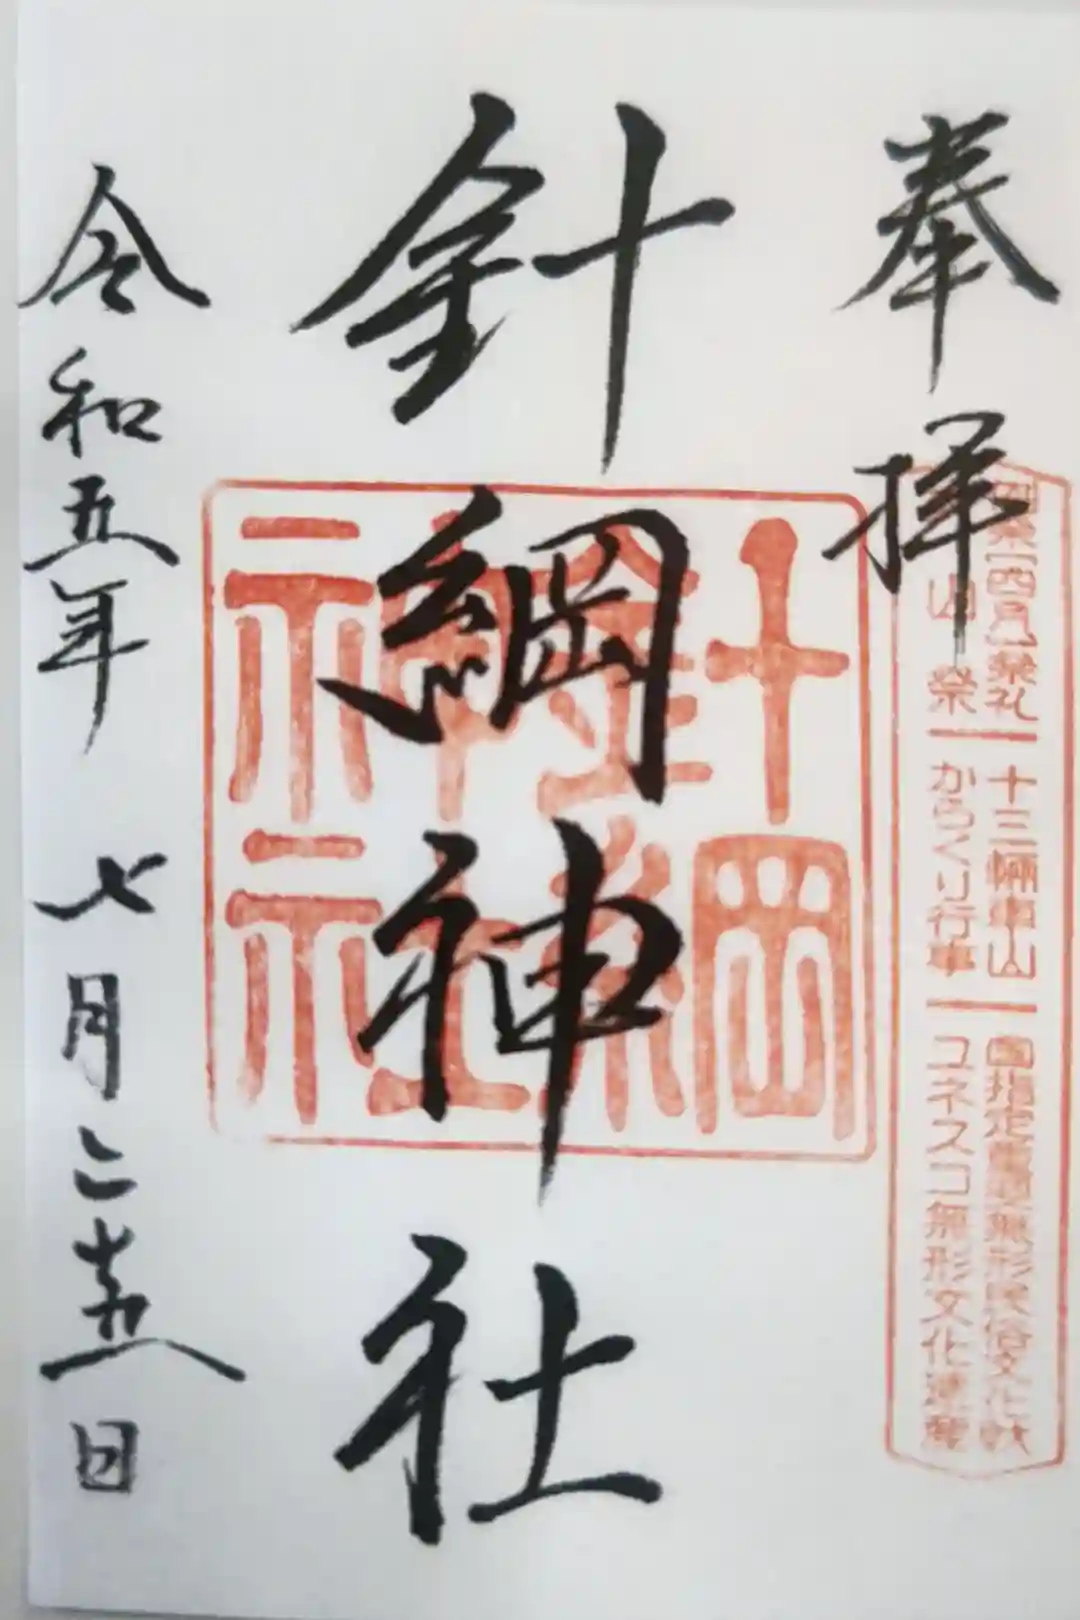 奉拝
四月 祭礼 十三輛車山 国指定重要無形民俗文化財
山 祭 からくり行事 ユネスコ無形文化遺産
針綱神社
針綱神社
令和五年 七月二十五日